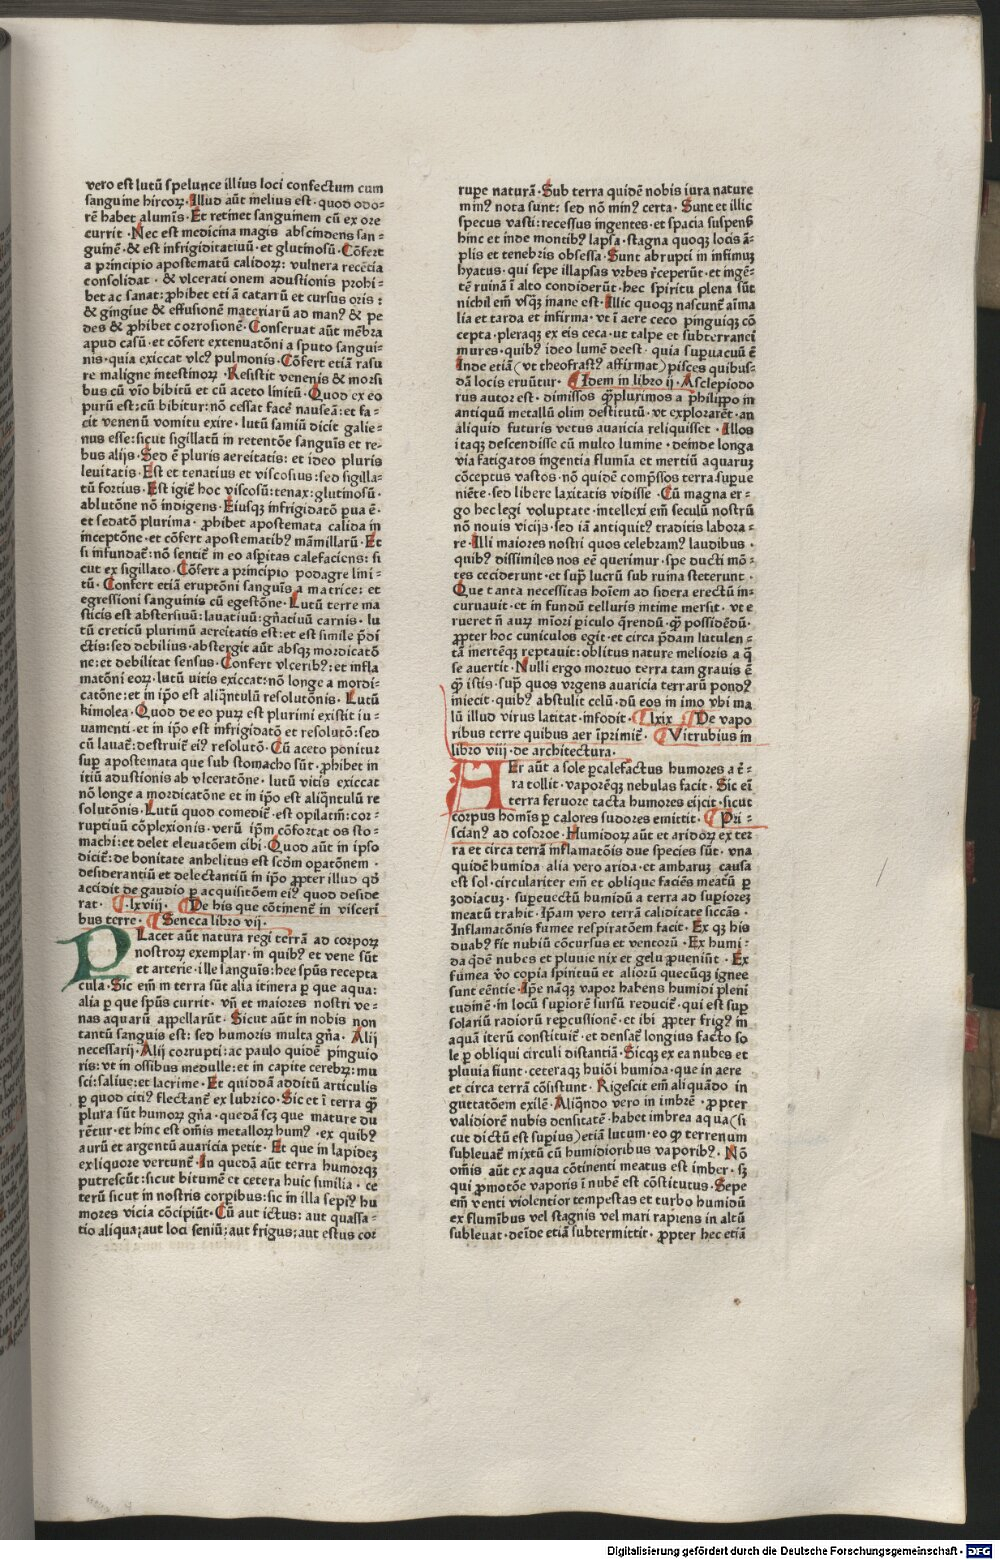 vero est lutū spelunce illius loci confectum cum
sanguine hircoꝝ · Illud aūt melius est · quod odo-
rē habet alumis · Et retinet sanguinem cū ex ore
currit · Nec est medicina magis abscindens san-
guinē · & est infrigiditatiuū · et glutinosū · Cōfert
a principio apostematū calidoꝝ : vulnera recētia
consolidat · & vlcerati onem adustionis prohi-
bet ac sanat : ꝓhibet eti ā catarrū et cursus oris :
& gingiue & effusionē materiarū ad manꝰ & pe
des & ꝓhibet corrosionē · Conseruat aūt mēbra
apud casū · et cōfert extenuatōni a sputo sangui-
nis · quia exiccat vlcꝰ pulmonis · Cōfert etiā rasu
re maligne intestinoꝝ · Resistit venenis & morsi
bus cū vīo bibitū et cū aceto linitū · Quod ex eo
purū est : cū bibitur : nō cessat facē nauseā : et fa-
cit venenū vomitu exire · lutū samiū dicit galie-
nus esse : sicut sigillatū in retentōe sanguīs et re-
bus alijs · Sed ē pluris aereitatis : et ideo pluris
leuitatis · Est et tenatius et viscosius : sed sigilla-
tū fortius · Est igit̄ hoc viscosū : tenax : glutinosū ·
ablutōne nō indigens · Eiusqꝫ infrigidatō pua ē ·
et sedatō plurima · ꝓhibet apostemata calida in
inceptōne · et cōfert apostematibꝰ māmillarū · Et
si infundat̄ : nō sentit̄ in eo asꝑitas calefaciens : si
cut ex sigillato · Cōfert a principio podagre lini-
tū · Confert etiā eruptōni sanguīs a matrice : et
egressioni sanguinis cū egestōne · Lutū terre ma
sticis est abstersiuū : lauatiuū : gn̄atiuū carnis · lu
tū creticū plurimū aereitatis est : et est simile p̄di
ctis : sed debilius · abstergit aūt absqꝫ mordicatō
ne : et debilitat sensus · Confert vlceribꝰ : et infla
matōni eoꝝ · lutū uitis exiccat : nō longe a mordi-
catōne : et in ip̄o est aliqn̄tulū resolutōnis · Lutū
kimolea · Quod de eo puꝝ est plurimi existit iu-
uamenti · et in ip̄o est infrigidatō et resolutō : sed
cū lauat̄ : destruit̄ eiꝰ resolutō · Cū aceto ponitur
suꝑ apostemata que sub stomacho sūt · ꝓhibet in
itiū adustionis ab vlceratōne · lutū vitis exiccat
nō longe a mordicatōne et in ip̄o est aliqn̄tulū re
solutōnis · Lutū quod comedit̄ · est opilatiū : cor-
ruptiuū cōplexionis · verū ip̄m cōfortat os sto-
machi : et delet eleuatōem cibi · Quod aūt in ipso
dicit̄ : de bonitate anhelitus est scd̄m opatōnem ·
desiderantiū et delectantiū in ip̄o ꝓpter illud qd̄
accidit de gaudio ꝑ acquisitōem eiꝰ quod deside
rat · lxviij · De his que cōtinent̄ in visceri
bus terre · Seneca libro vij ·
PLacet aūt natura regi terrā ad corpoꝝ
nostroꝝ exemplar · in quibꝰ et vene sūt
et arterie · ille sanguīs : hee spūs recepta
cula · Sic em̄ in terra sūt alia itinera ꝑ que aqua :
alia ꝑ que spūs currit · vn̄ et maiores nostri ve-
nas aquarū appellarūt · Sicut aūt in nobis non
tantū sanguis est : sed humoris multa gn̄a · Alij
necessarij · Alij corrupti : ac paulo quidē pinguio
ris : vt in ossibus medulle : et in capite cerebꝝ : mu
sci : saliue : et lacrime · Et quiddā additū articulis
ꝑ quod citiꝰ flectant̄ ex lubrico · Sic et ī terra ꝙ̄
plura sūt humoꝝ gn̄a · quedā scꝫ que mature du
rētur · et hinc est om̄is metalloꝝ humꝰ · ex quibꝰ
aurū et argentū auaricia petit · Et que in lapideꝫ
ex liquore vertunt̄ · In quedā aūt terra humorqꝫ
putrescūt : sicut bitumē et cetera huic similia · ce
terū sicut in nostris corpibus : sic in illa sepiꝰ hu
mores vicia cōcipiūt · Cū aut ictus : aut quassa-
tio aliqua ; aut loci seniū ; aut frigus ; aut estus cor
rupe naturā · Sub terra quidē nobis iura nature
minꝰ nota sunt : sed nō minꝰ certa · Sunt et illic
specus vasti : recessus ingentes · et spacia suspens̄
hinc et inde montibꝰ lapsa · stagna quoqꝫ locis ā-
plis et tenebris obsessa · Sunt abrupti in infimuꝫ
hyatus · qui sepe illapsas vrbes r̄ceperūt · et ingē-
tē ruinā ī alto condiderūt · hec spiritu plena sūt
nichil em̄ vsqꝫ inane est · Illic quoqꝫ nascunt̄ aīma
lia et tarda et infirma · vt ī aere ceco pinguiqꝫ cō
cepta · pleraqꝫ ex eis ceca · ut talpe et subterranei
mures · quibꝰ ideo lumē deest · quia suꝑuacuū ē
Inde etiā ( vt theofrastꝰ affirmat ) pisces quibus-
dā locis eruūtur · Idem in libro ij · Asclepiodo
rus autor est · dimissos ꝙ̄plurimos a philippo in
antiquū metallū olim destitutū · vt explorarēt · an
aliquid futuris vetus auaricia reliquisset · Illos
itaqꝫ descendisse cū multo lumine · deinde longa
via fatigatos ingentia flumīa et mertiū aquaruꝫ
cōceptus vastos · nō quidē comp̄ssos terra suꝑue
niēte · sed libere laxitatis vidisse · Cū magna er-
go hec legi voluptate · intellexi em̄ seculū nostrū
nō nouis vicijs · sed iā antiquitꝰ traditis labora-
re · Illi maiores nostri quos celebramꝰ laudibus ·
quibꝰ dissimiles nos eē querimur · spe ducti mō-
tes ceciderunt · et suꝑ lucrū sub ruina steterunt ·
Que tanta necessitas hoīem ad sidera erectū in-
curuauit · et in fundū telluris intime mersit · vt e
rueret n̄ auꝝ mīori ꝑiculo q̄rendū · ꝙ̄ possidēdū ·
ꝓpter hoc cuniculos egit · et circa p̄dam lutulen-
tā incertēqꝫ reptauit : oblitus nature melioris a q̄
se auertit · Nulli ergo mortuo terra tam grauis ē
ꝙ̄ istis · suꝑ quos vrgens auaricia terrarū pondꝰ
iniecit · quibꝰ abstulit celū · dū eos in imo vbi ma
lū illud virus latitat · infodit · lxix De vapo
ribus terre quibus aer īprimit̄ · Vitrubius in
libro viij · de architectura ·
AEr aūt a sole ꝑcalefactus humores a t̄-
ra tollit · vaporēqꝫ nebulas facit · Sic eī
terra feruore tacta humores eijcit · sicut
corpus homīs ꝑ calores sudores emittit · Pri-
scianꝰ ad cosdroe · Humidoꝝ aūt et aridoꝝ ex ter
ra et circa terrā inflamatōis due species sūt · vna
quidē humida alia vero arida · et ambaruꝫ causa
est sol · circulariter em̄ et oblique faciēs meatū ꝑ
zodiacuꝫ · suꝑeuectū humidū a terra ad suꝑioreꝫ
meatū trahit · Ip̄am vero terrā caliditate siccās ·
Inflamatōnis fumee respiratōem facit · Ex qꝫ his
duabꝰ fit nubiū cōcursus et ventorū · Ex humi-
da qdē nubes et pluuie nix et gelu ꝓueniūt · Ex
fumea v̄o copia spirituū et aliorū quecūqꝫ ignee
sunt eēntie · Ip̄e nāqꝫ vapor habens humidi pleni
tudinē · in locū suꝑiorē sursū reducit̄ · qui est suꝑ
solariū radiorū reꝑcussionē · et ibi ꝓpter frigꝰ in
aquā iterū constituit̄ · et densat̄ longius facto so
le ꝑ obliqui circuli distantiā · Sicqꝫ ex ea nubes et
pluuia fiunt · ceteraqꝫ huiōi humida · que in aere
et circa terrā cōsistunt · Rigescit em̄ aliquādo in
guttatōem exilē · Aliqn̄do vero in imbrē · ꝓpter
validiorē nubis densitatē · habet imbrea aqua ( si
cut dictū est supius ) etiā lutum · eo ꝙ terrenum
subleuat̄ mixtū cū humidioribus vaporibꝰ · Nō
om̄is aūt ex aqua cōtinenti meatus est imber · sꝫ
qui ꝓmotōe vaporis ī nubē est cōstitutus · Sepe
em̄ venti violentior tempestas et turbo humidū
ex flumībus vel stagnis vel mari rapiens in altū
subleuat · deīde etiā subtermittit · ꝓpter hec etiā
Digitalisierung gefördert durch die Deutsche Forschungsgemeinschaft - DFG